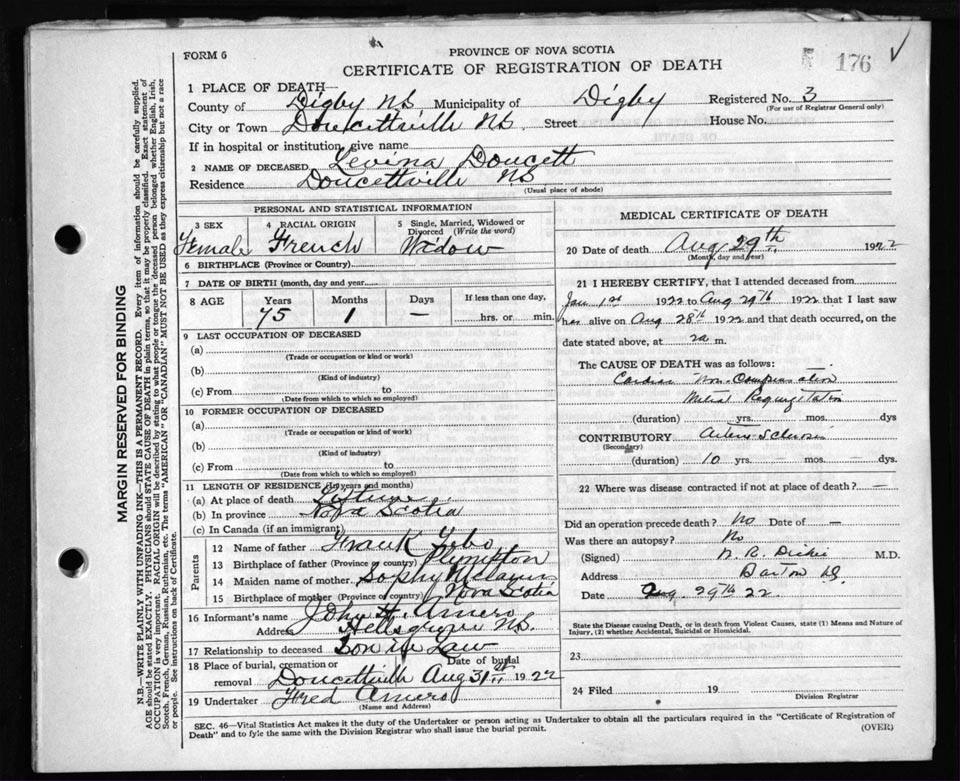 FORM 6
PROVINCE OF NOVA SCOTIA
CERTIFICATE OF REGISTRATION OF DEATH
176
MARGIN RESERVED FOR BINDING
N.B.—WRITE PLAINLY WITH UNFADING INK—THIS IS A PERMANENT RECORD. Every item of information should be carefully supplied.
AGE should be stated EXACTLY. PHYSICIANS should STATE CAUSE OF DEATH in plain terms, so that it may be properly classified. Exact statement of
OCCUPATION is very important. RACIAL ORIGIN will be described by stating to what people or tongue the deceased person belonged, whether English, Irish,
Scotch, French, German, Russian, Ruthenian, etc. The terms "AMERICAN" OR "CANADIAN" MUST NOT BE USED as they express citizenship but not a race
or people. See instructions on back of Certificate.
1 PLACE OF DEATH—
County of Digby NS Municipality of Digby Registered No. 3
(For use of Registrar General only)
City or Town Doucettville NS. Street House No.
If in hospital or institution, give name
2 NAME OF DECEASED Levina Doucett
Residence Doucettville NS
(Usual place of abode)
PERSONAL AND STATISTICAL INFORMATION
3 SEX Female
4 RACIAL ORIGIN French
5 Single, Married, Widowed or Divorced (Write the word) Widow
6 BIRTHPLACE (Province or Country)
7 DATE OF BIRTH (month, day and year)
8 AGE Years Months Days If less than one day,
75 1 — hrs. or min.
9 LAST OCCUPATION OF DECEASED
(a)
(Trade or occupation or kind or work)
(b)
(Kind of industry)
(c) From to
(Date from which to which so employed)
10 FORMER OCCUPATION OF DECEASED
(a)
(Trade or occupation or kind of work)
(b)
(Kind of industry)
(c) From to
(Date from which to which so employed)
11 LENGTH OF RESIDENCE (In years and months)
(a) At place of death
(b) In province Nova Scotia
(c) In Canada (if an immigrant)
Parents
12 Name of father Frank
13 Birthplace of father (Province or country) Plimpton
14 Maiden name of mother Sophy
15 Birthplace of mother (Province or country) Nova Scotia
16 Informant's name John H. Amero
Address NS.
17 Relationship to deceased Son in Law
18 Place of burial, cremation or removal Date of burial
Doucettville Aug 31st 1922
19 Undertaker Fred Amero
(Name and Address)
MEDICAL CERTIFICATE OF DEATH
20 Date of death Aug 29th 1922
(Month, day and year)
21 I HEREBY CERTIFY, that I attended deceased from
Jan 1st 1922 to Aug 29th 1922 that I last saw
her alive on Aug 28th 1922 and that death occurred, on the
date stated above, at 2a m.
The CAUSE OF DEATH was as follows:
Cardiac Non-Compensation
Mitral Regurgitation
(duration) yrs. mos. dys
CONTRIBUTORY Arterio-Sclerosis
(Secondary)
(duration) 10 yrs. mos. dys.
22 Where was disease contracted if not at place of death? —
Did an operation precede death? No Date of —
Was there an autopsy? No
(Signed) Dickie M.D.
Address Barton
Date Aug. 29th 22.
State the Disease causing Death, or in death from Violent Causes, state (1) Means and Nature of
Injury, (2) whether Accidental, Suicidal or Homicidal.
23
24 Filed 19
Division Registrar
SEC. 46—Vital Statistics Act makes it the duty of the Undertaker or person acting as Undertaker to obtain all the particulars required in the "Certificate of Registration of
Death" and to fyle the same with the Division Registrar who shall issue the burial permit.
(OVER)